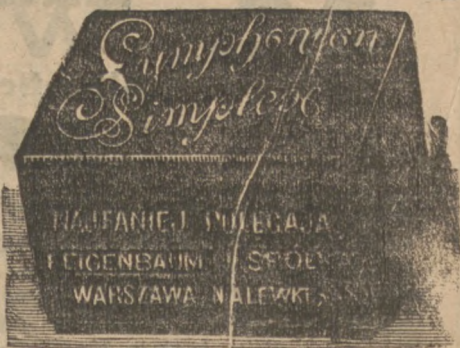 Symphonion
Simplex
NAJTANIEJ POLECAJĄ
FEIGENBAUM I SPÓŁKA
WARSZAWA NALEWKI